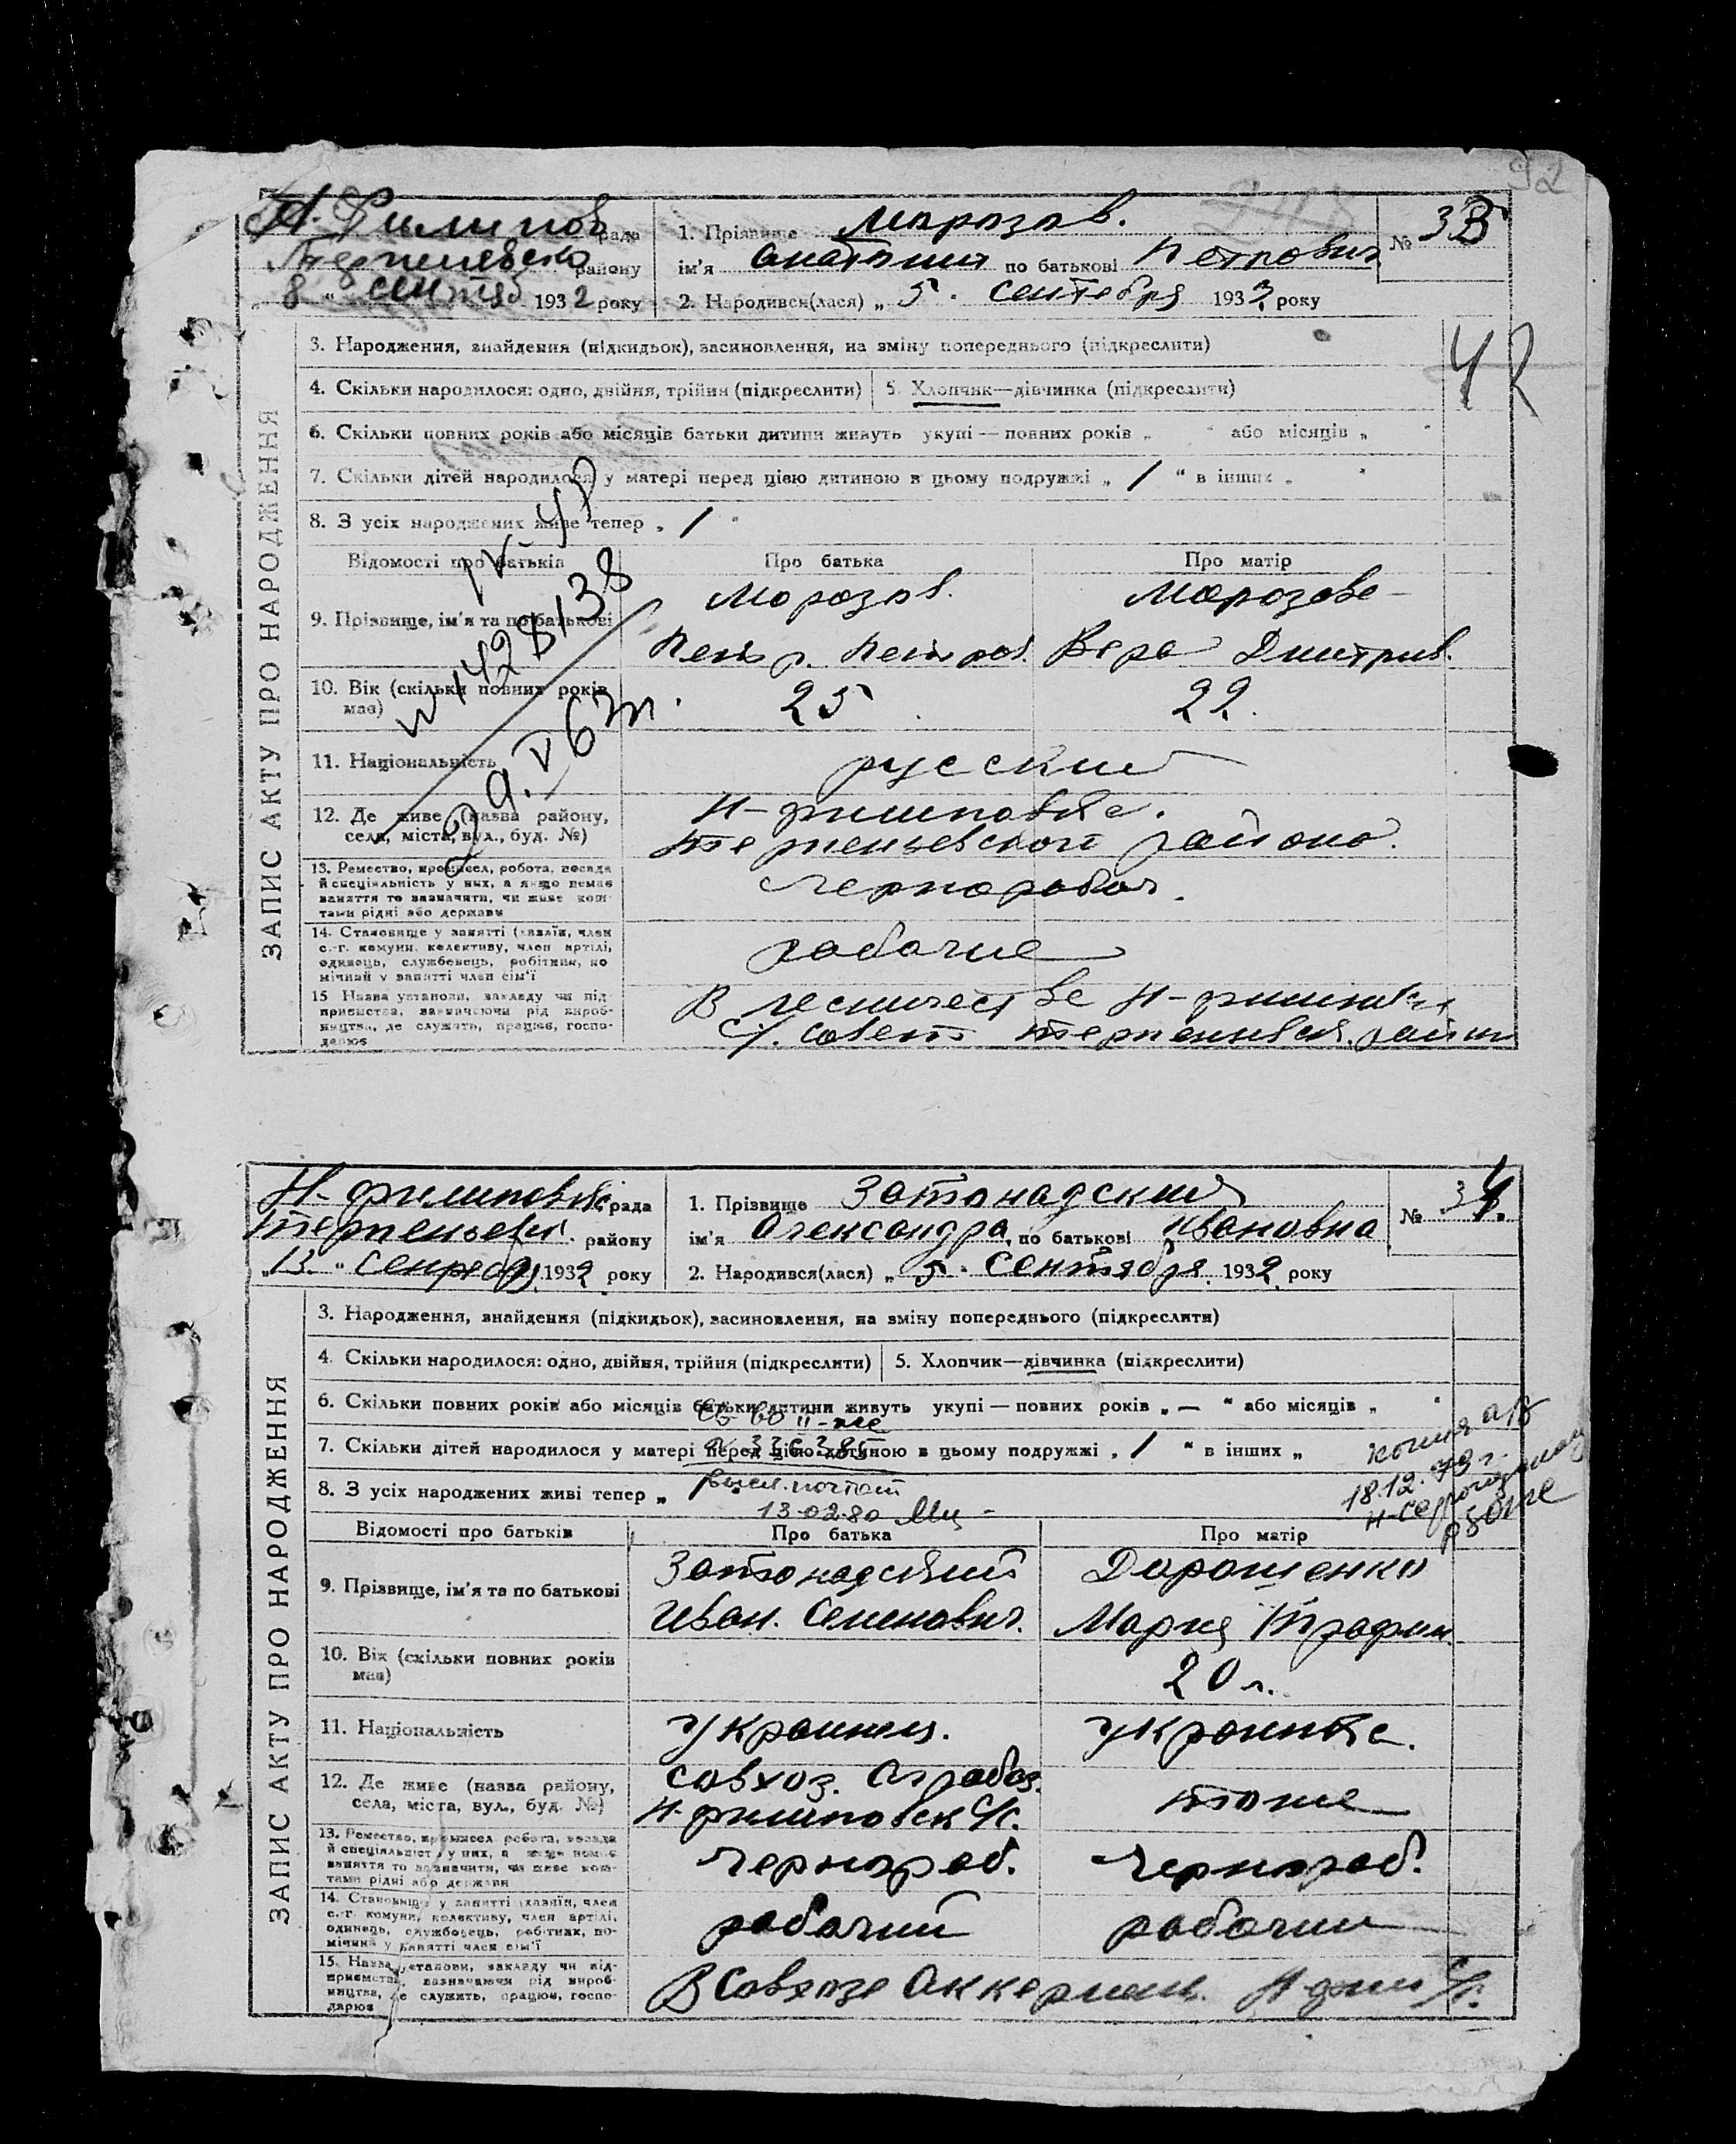 92
Н. Филипов рада
району
8 " сентяб 1932 року
1. Прізвище Морозов.
№ 33
ім'я Анатолий по батькові Петрович
2. Народився(лася) „ 5. сентебря 1933 року
ЗАПИС АКТУ ПРО НАРОДЖЕННЯ
3. Народження, знайдення (підкидьок), засиновлення, на зміну попереднього (підкреслити)
42
4. Скільки народилося: одно, двійня, трійня (підкреслити) 5. Хлопчик—дівчинка (підкреслити)
6. Скільки повних років або місяців батьки дитини живуть укупі — повних років „ " або місяців „ "
7. Скільки дітей народилося у матері перед цією дитиною в цьому подружжі „ 1 " в інших „ "
8. З усіх народжених живе тепер „ 1 "
Відомості про батьків Про батька Про матір
9. Прізвище, ім'я та по батькові
Морозов. Морозова
Петр. Петров. Вера Дмитрив.
10. Вік (скільки повних років має) 25 22.
11. Національність русские
12. Де живе (назва району, села, міста, вул., буд. №)
Н-филиповка.
района.
13. Ремество, промисел, робота, посада й спеціяльність у них, а якщо немає заняття то зазначити, чи живе коштами рідні або держави
Чернорабоч.
14. Становище у занятті (хазяїн, член с.-г. комуни, колективу, член артілі, одинець, службовець, робітник, помічний у занятті член сім'ї
рабочие
15 Назва установи, закладу чи підприємства, зазначаючи рід виробництва, де служить, працює, господарює
В лесничестве Н-филиповк
с/. совет
Н-филиповка рада
району
„ 13. " Сентебр 1932 року
1. Прізвище Затонадский
№ 34.
ім'я Олександра по батькові Ивановна
2. Народився(лася) „ 5. Сентября 1932 року
ЗАПИС АКТУ ПРО НАРОДЖЕННЯ
3. Народження, знайдення (підкидьок), засиновлення, на зміну попереднього (підкреслити)
4. Скільки народилося: одно, двійня, трійня (підкреслити) 5. Хлопчик—дівчинка (підкреслити)
6. Скільки повних років або місяців батьки дитини живуть укупі — повних років „ — " або місяців „ "
св-во II-
7. Скільки дітей народилося у матері перед цією дитиною в цьому подружжі „ 1 " в інших „
копия а/з
18.12.79 г.
8. З усіх народжених живі тепер „
высл. почтой
13.02.80
Відомості про батьків Про батька Про матір
9. Прізвище, ім'я та по батькові
Затонадский Дорошенко
Иван. Семенович. Мария Трафим.
10. Вік (скільки повних років має) 20 л.
11. Національність Украинец. Украинка.
12. Де живе (назва району, села, міста, вул., буд. №)
совхоз.
Н-филиповск с/с. тоже
13. Ремество, промисел робота, посада й спеціяльність у них, а якщо немає заняття то зазначити, чи живе коштами рідні або держави
Чернораб. Чернораб.
14. Становище у занятті (хазяїн, член с.-г. комуни, колективу, член артілі, одинець, службовець, робітник, помічний у занятті член сім'ї
рабочий рабочий
15. Назва установи, закладу чи підприємства, зазначаючи рід виробництва, де служить, працює, господарює
В Совхозе Аккермен. Н фил с/с.